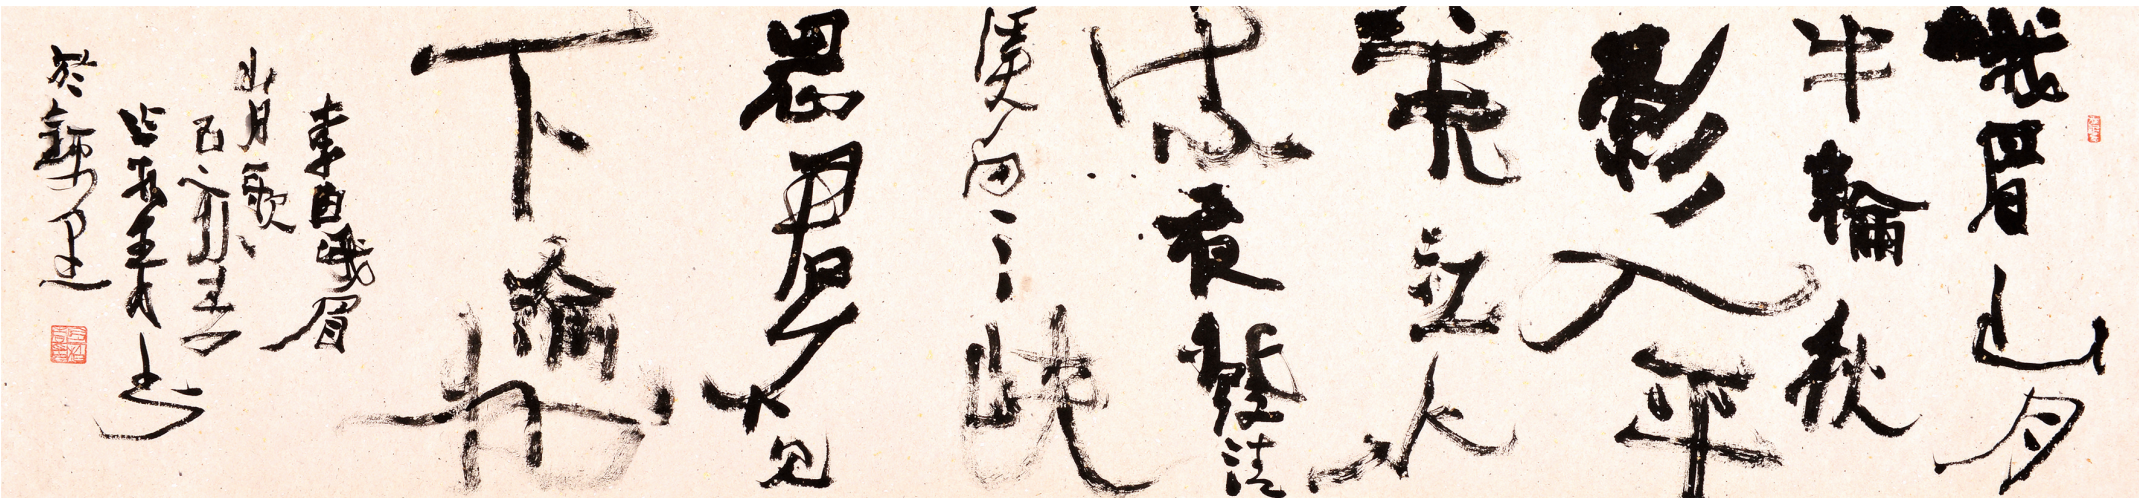 峨眉山月
半輪秋
影入平
羌江水
流夜發清
溪向三峽
思君不見
下渝州
李白峨眉
山月歌